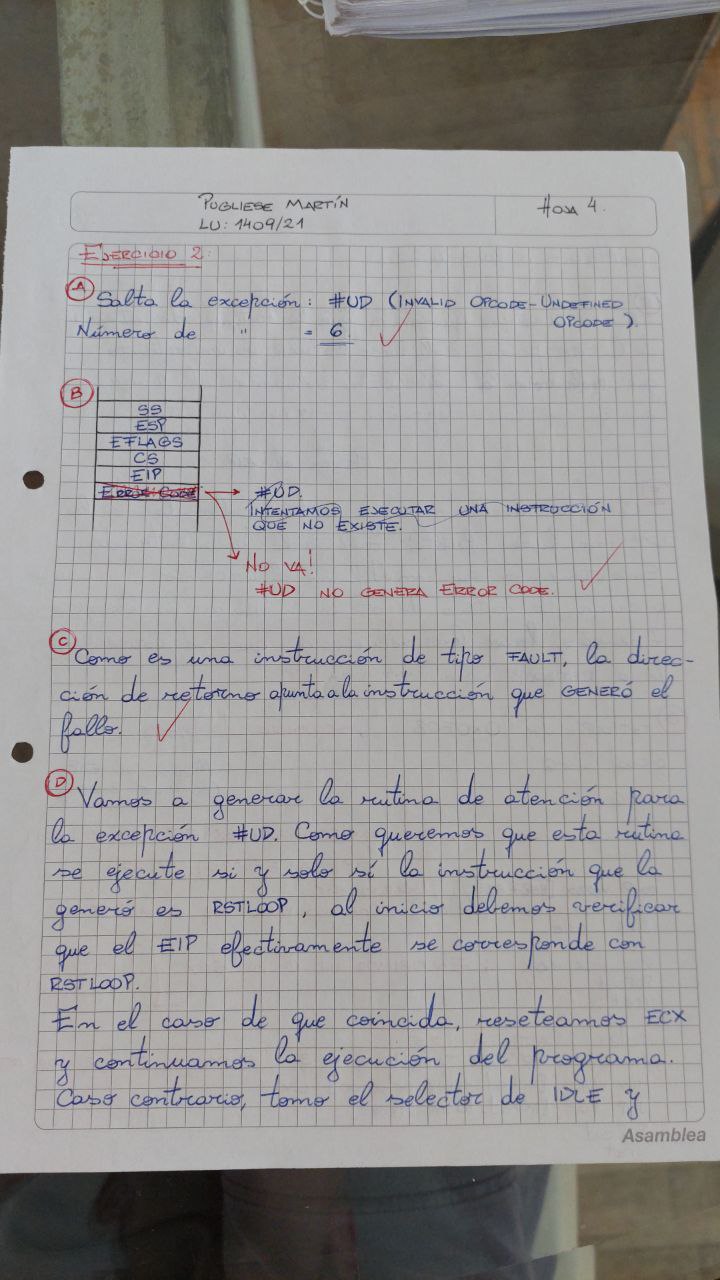 PUGLIESE MARTÍN
LU: 1409/21
HOJA 4.
EJERCICIO 2:
A Salta la excepción: #UD (INVALID OPCODE-UNDEFINED
OPCODE).
Número de " = 6
B
SS
ESP
EFLAGS
CS
EIP
ERROR CODE → #UD.
INTENTAMOS EJECUTAR UNA INSTRUCCIÓN
QUE NO EXISTE.
NO VA!
#UD NO GENERA ERROR CODE.
C Como es una instrucción de tipo FAULT, la direc-
ción de retorno apunta a la instrucción que GENERÓ el
fallo.
D Vamos a generar la rutina de atención para
la excepción #UD. Como queremos que esta rutina
se ejecute si y solo sí la instrucción que la
generó es RSTLOOP, al inicio debemos verificar
que el EIP efectivamente se corresponde con
RSTLOOP.
En el caso de que coincida, reseteamos ECX
y continuamos la ejecución del programa.
Caso contrario, tomo el selector de IDLE y
Asamblea